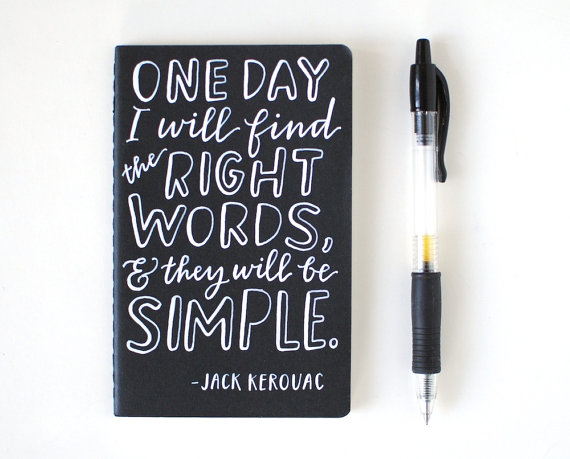 ONE DAY
I will find
the RIGHT
WORDS,
& they will be
SIMPLE.
-JACK KEROUAC